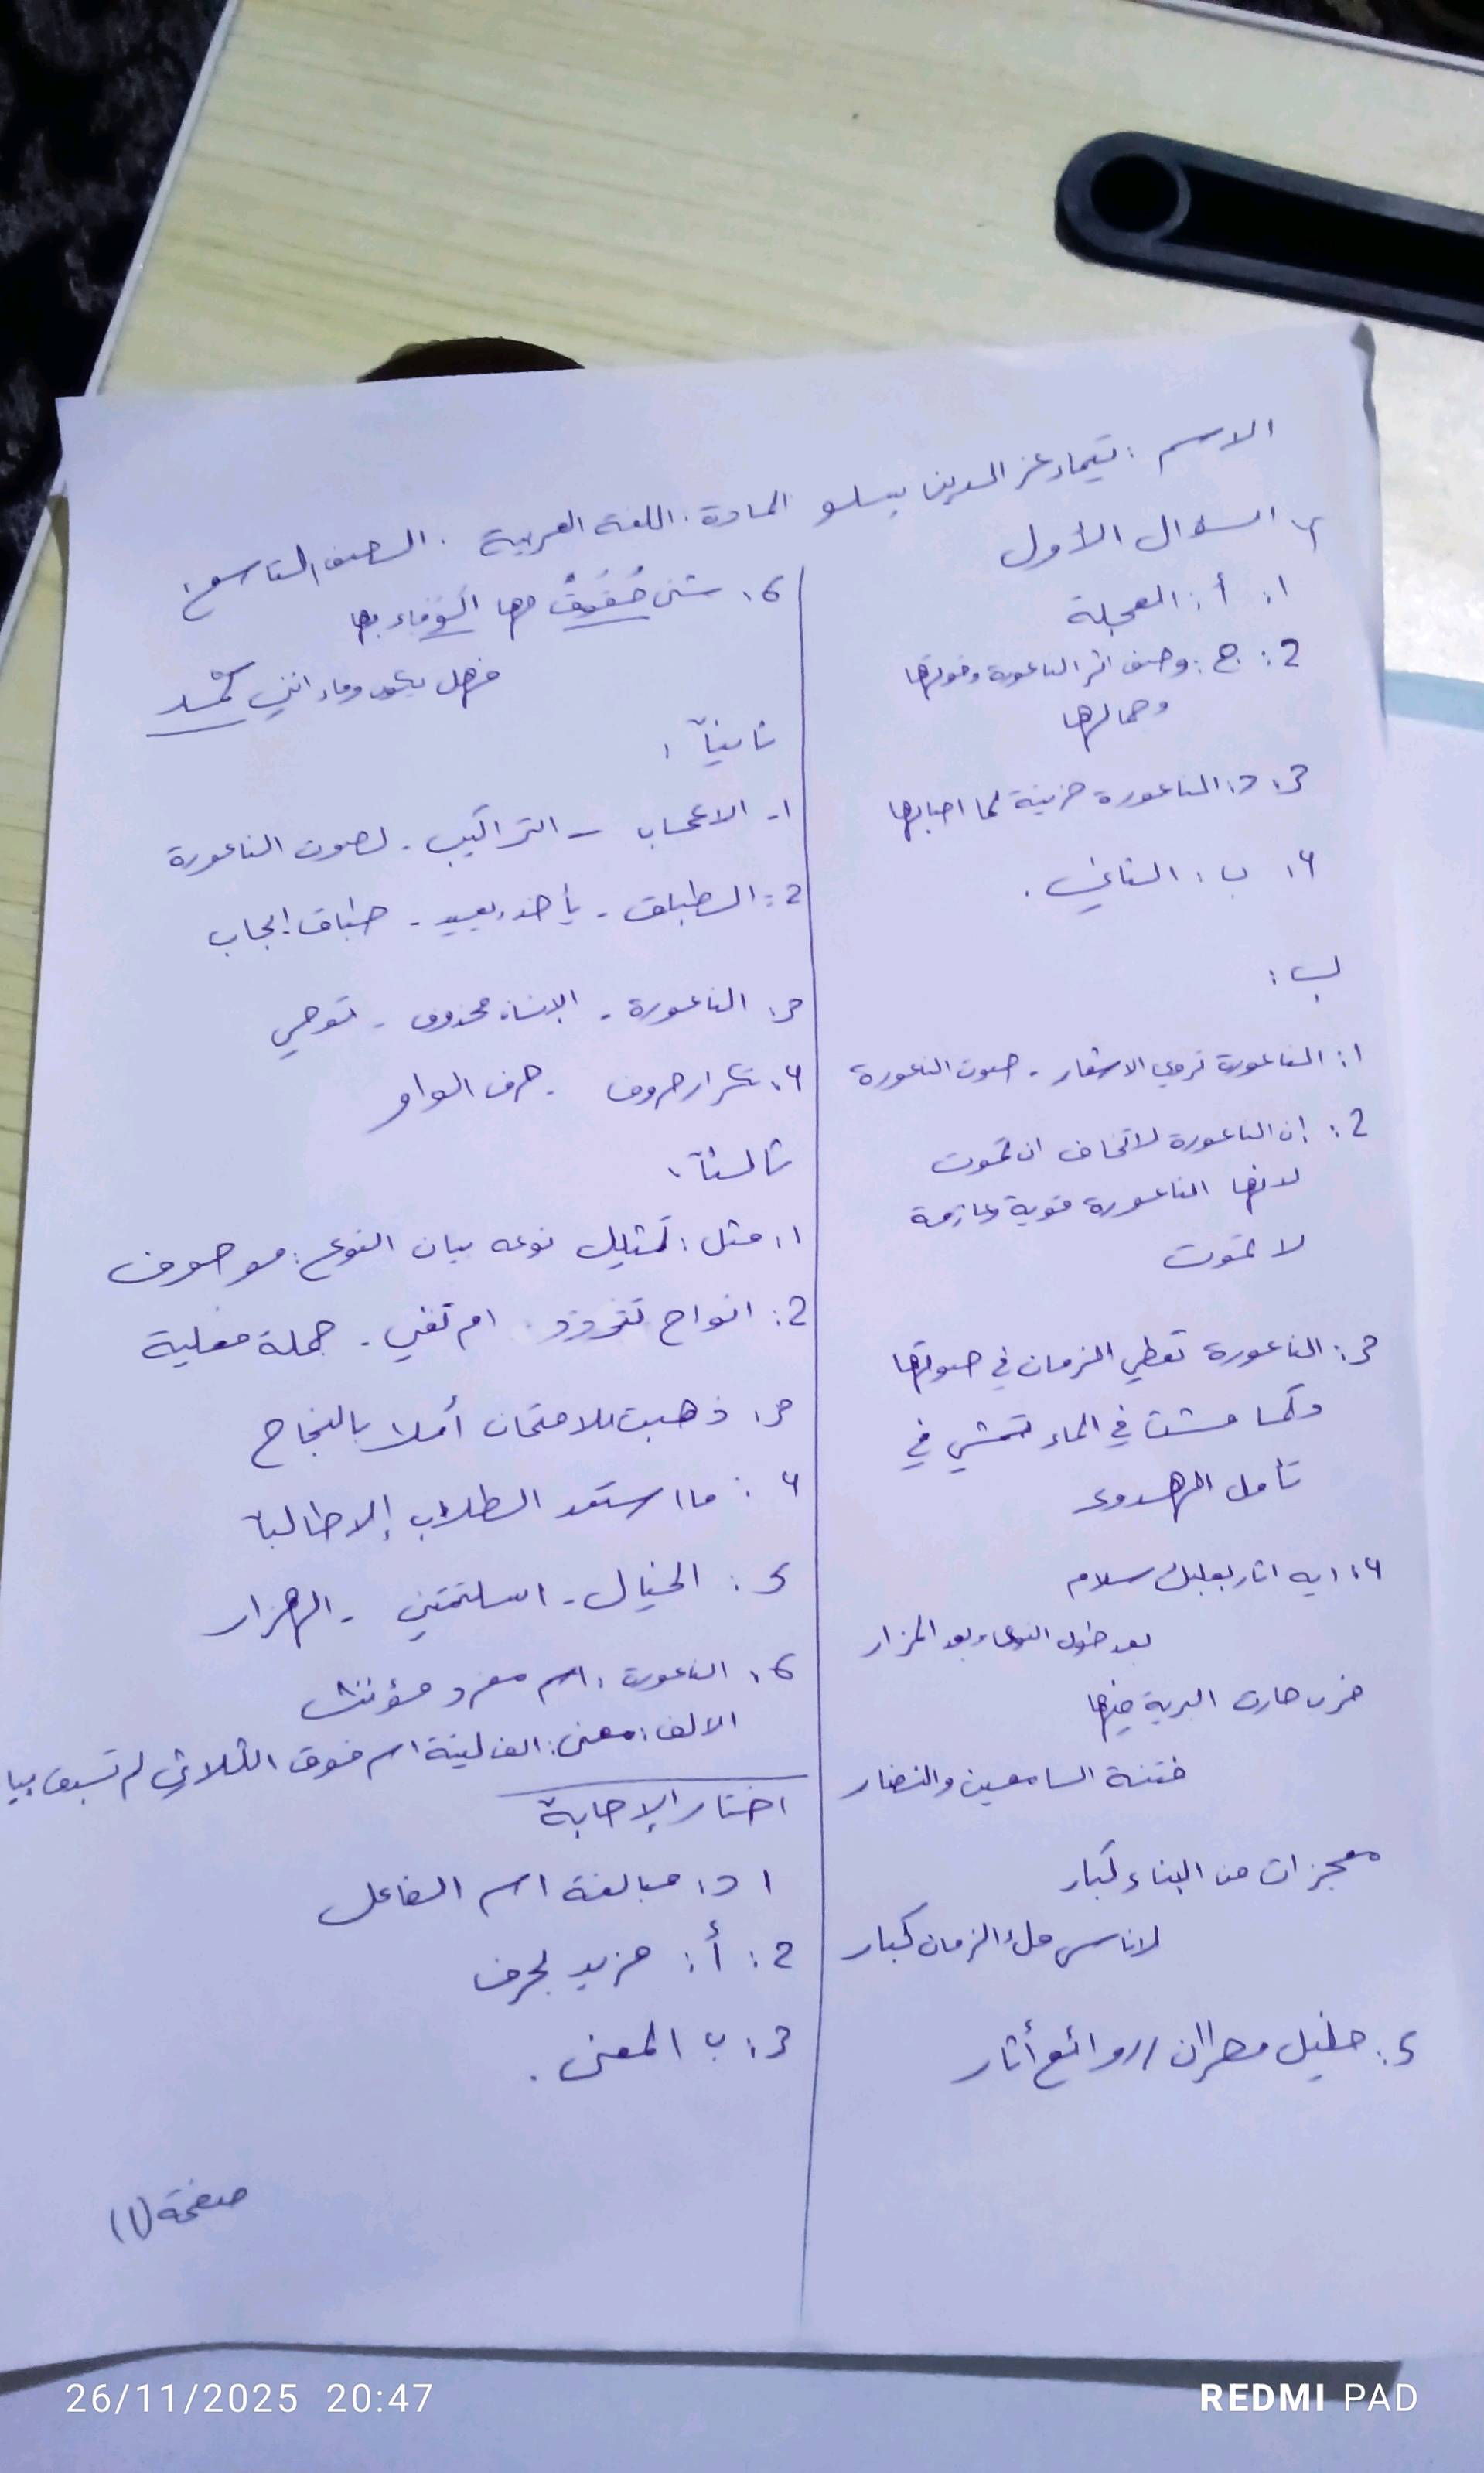 الاسم : تيماء عز الدين بيسلو المادة : اللغة العربية . الصف التاسع :
السؤال الأول
1: أ : العجلة
2: ج : وصف اثر الناعورة وقوتها
وجمالها
3: د : الناعورة حزينة لما اصابها
4: ب : الثاني .
ب :
1: الناعورة تروي الاشعار - صوت الناعورة
2: إن الناعورة لا تخاف ان تموت
لانها الناعورة قوية وعازمة
لا تموت
3: الناعورة تعطي الزمان في صوتها
وكما مشت في الماء تمشي في
تأمل الهدوء
4: ايه اثار بعلبك سلام
بعد طول النوى وبعد المزار
خرب حارت البرية فيها
فتنة السامعين والنضار
معجزات من البناء كبار
لاناس ملء الزمان كبار
5: خليل مطران // روائع أثار
6: شتى حُقُوقٌ لها الوفاء بها
فهل يكون وفاء انني كمد
ثانياً :
1- الاعجاب - التراكيب - لصوت الناعورة
2: الطباق - يأخذ، يعيد - طباق ايجاب
3: الناعورة - الانسان محذوف - توحي
4: تكرار حروف - حرف الواو
ثالثاً :
1: مثل : تمثيل نوعه بيان النوع : موصوف
2: انواح ام تغني - جملة فعلية
3: ذهبت للامتحان أملا بالنجاح
4: ما استعد الطلاب إلا طالباً
5: الخيال - - الهزار
6: الناعورة : اسم مفرد مؤنث
الالف : معنى : الف لينة اسم فوق الثلاثي لم تسبق بيا
اختار الإجابة
1 د : مبالغة اسم الفاعل
2: أ : مزيد بحرف
3: ب المعنى .
صفحة (1)
26/11/2025 20:47
REDMI PAD